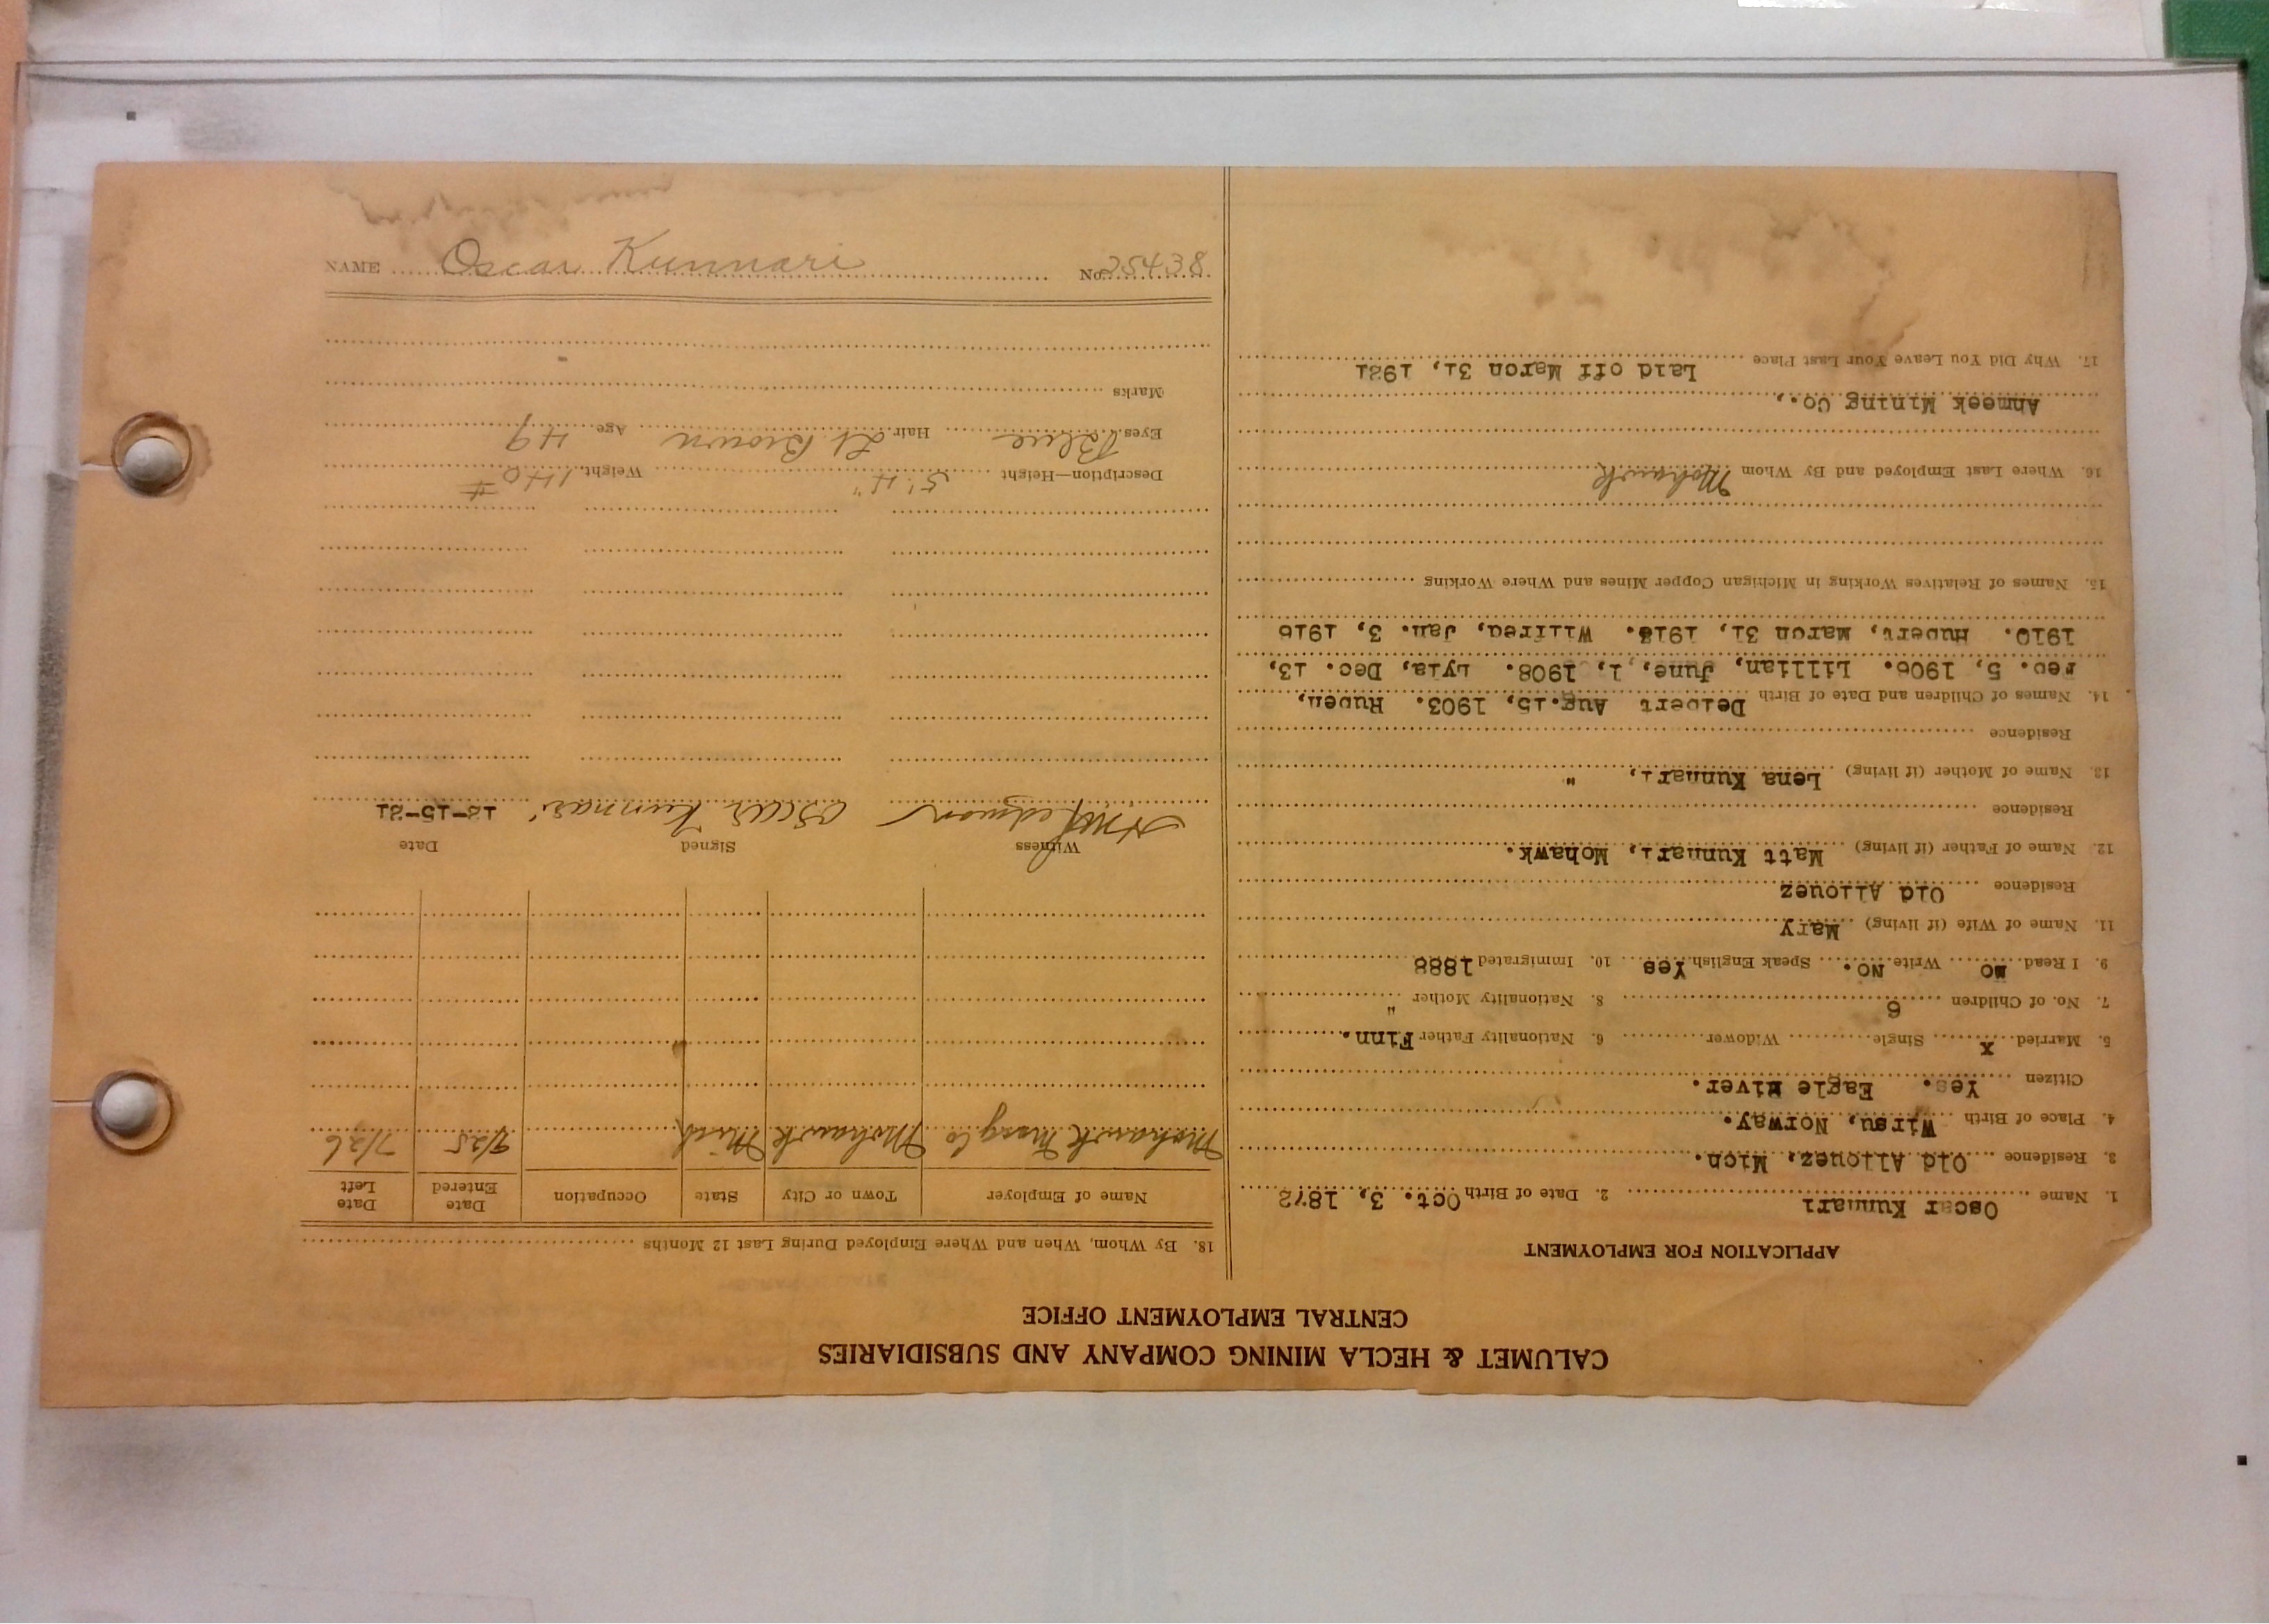 CALUMET & HECLA MINING COMPANY AND SUBSIDIARIES
CENTRAL EMPLOYMENT OFFICE
APPLICATION FOR EMPLOYMENT
1. Name Oscar Kunnari 2. Date of Birth Oct. 3, 1872
3. Residence Old Allouez, Mich.
4. Place of Birth Wirsu, Norway.
Citizen Yes. Eagle River.
5. Married x Single Widower 6. Nationality Father Finn.
7. No. of Children 6 8. Nationality Mother "
9. I Read no Write No. Speak English Yes 10. Immigrated 1888
11. Name of Wife (if living) Mary
Residence Old Allouez
12. Name of Father (if living) Matt Kunnari, Mohawk.
Residence
13. Name of Mother (if living) Lena Kunnari, "
Residence
14. Names of Children and Date of Birth Delbert Aug.15, 1903. Ruben,
Feb. 5, 1906. Lillian, June, 1, 1908. Lyla, Dec. 13,
1910. Hubert, March 31, 1913. Wilfred, Jan. 3, 1916
15. Names of Relatives Working in Michigan Copper Mines and Where Working
16. Where Last Employed and By Whom Mohawk
Ahmeek Mining Co.,
17. Why Did You Leave Your Last Place
Laid off March 31, 1921
18. By Whom, When and Where Employed During Last 12 Months
Name of Employer Town or City State Occupation Date Entered Date Left
Mohawk Mng Co Mohawk Mich 9/25 7/26
Witness Signed Date
Oscar Kunnari 12-15-21
Description—Height 5' 4" Weight 140 #
Eyes Blue Hair Lt Brown Age 49
Marks
NAME Oscar Kunnari No. 25438